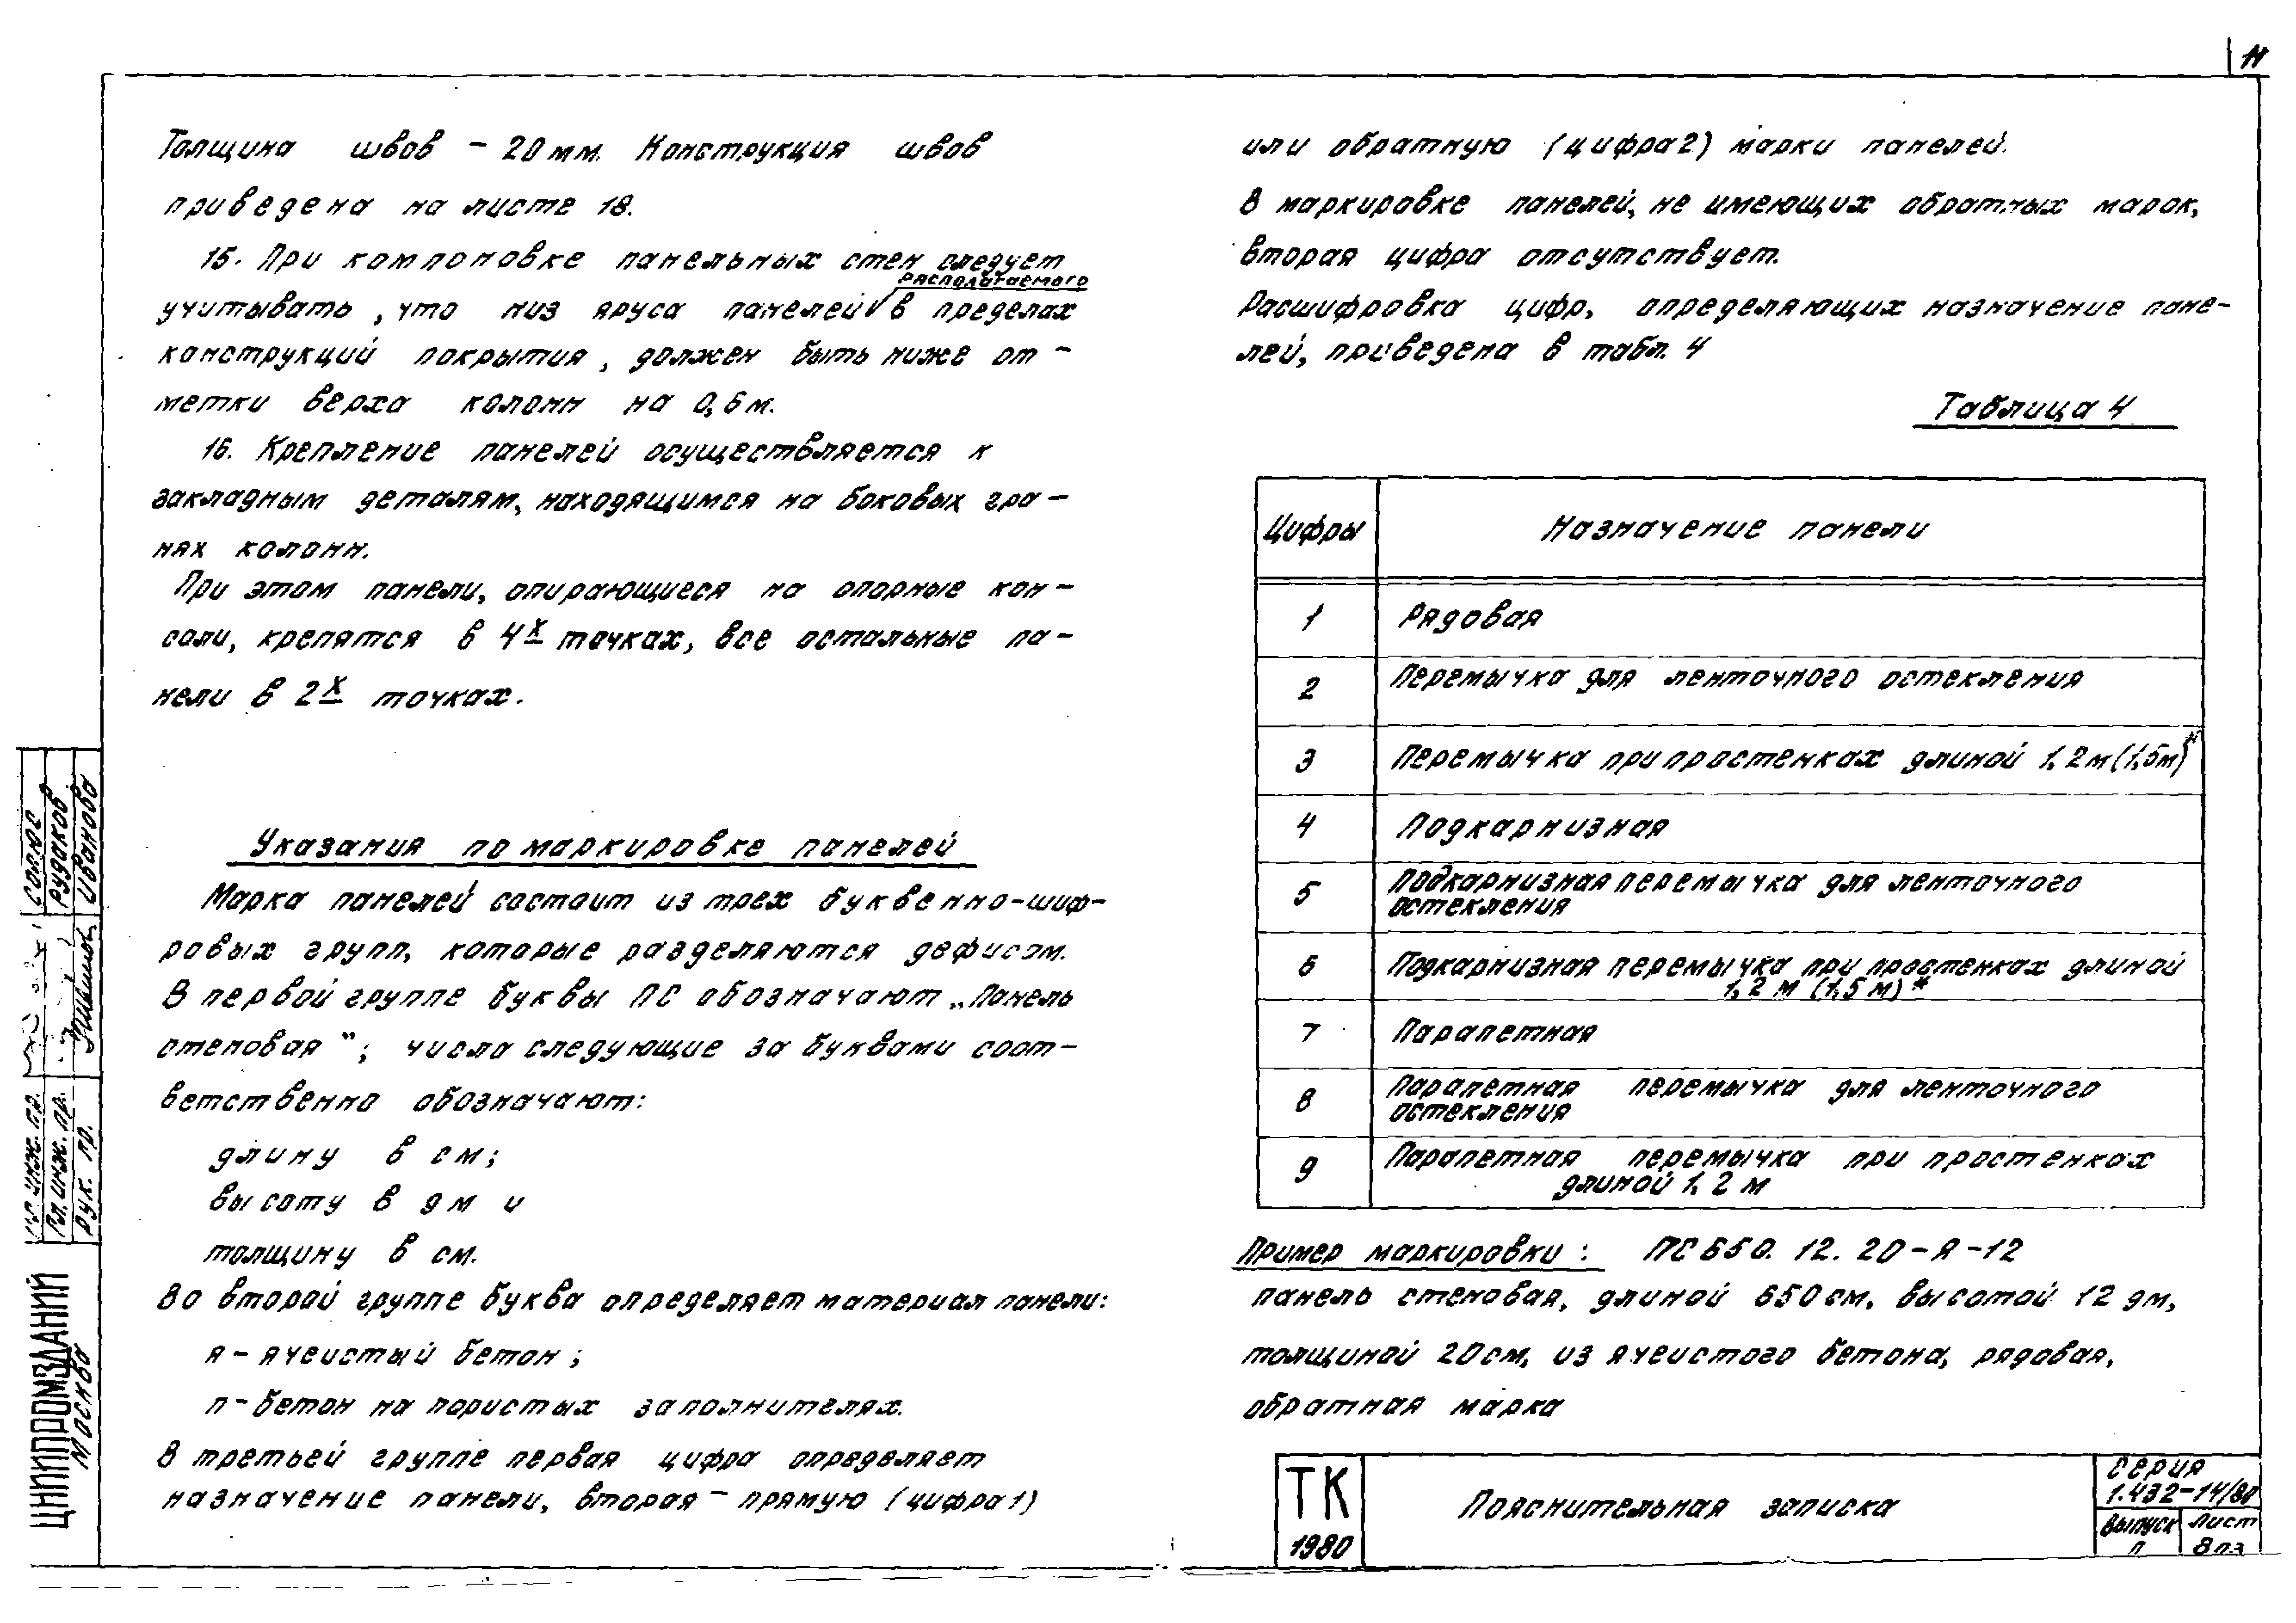 11
Толщина швов - 20 мм. Конструкция швов
приведена на листе 18.
15. При компоновке панельных стен следует
располагаемого
учитывать, что низ яруса панелей √ в пределах
конструкций покрытия, должен быть ниже от-
метки верха колонн на 0,6 м.
16. Крепление панелей осуществляется к
закладным деталям, находящимся на боковых гра-
нях колонн.
При этом панели, опирающиеся на опорные кон-
соли, крепятся в 4х точках, все остальные па-
нели в 2х точках.
Указания по маркировке панелей
Марка панелей состоит из трех буквенно-шиф-
ровых групп, которые разделяются дефисом.
В первой группе буквы ПС обозначают „Панель
стеновая"; числа следующие за буквами соот-
ветственно обозначают:
длину в см;
высоту в дм и
толщину в см.
Во второй группе буква определяет материал панели:
я - ячеистый бетон;
п - бетон на пористых заполнителях.
В третьей группе первая цифра определяет
назначение панели, вторая - прямую (цифра 1)
или обратную (цифра 2) марки панелей.
В маркировке панелей, не имеющих обратных марок,
вторая цифра отсутствует.
Расшифровка цифр, определяющих назначение пане-
лей, приведена в табл. 4
Таблица 4
Цифры Назначение панели
1 Рядовая
2 Перемычка для ленточного остекления
3 Перемычка при простенках длиной 1,2 м (1,5м)*
4 Подкарнизная
5 Подкарнизная перемычка для ленточного
остекления
6 Подкарнизная перемычка при простенках длиной
1,2 м (1,5 м)*
7 Парапетная
8 Парапетная перемычка для ленточного
остекления
9 Парапетная перемычка при простенках
длиной 1,2 м
Пример маркировки: ПС 650. 12. 20 - Я - 12
панель стеновая, длиной 650 см, высотой 12 дм,
толщиной 20см, из ячеистого бетона, рядовая,
обратная марка
ТК
1980
Пояснительная записка
Серия
1.432-14/80
Выпуск Лист
II 8пз
Гл. инж. пр.
Рук. гр.
Рудаков
Иванова
ЦНИИПРОМЗДАНИЙ
Москва